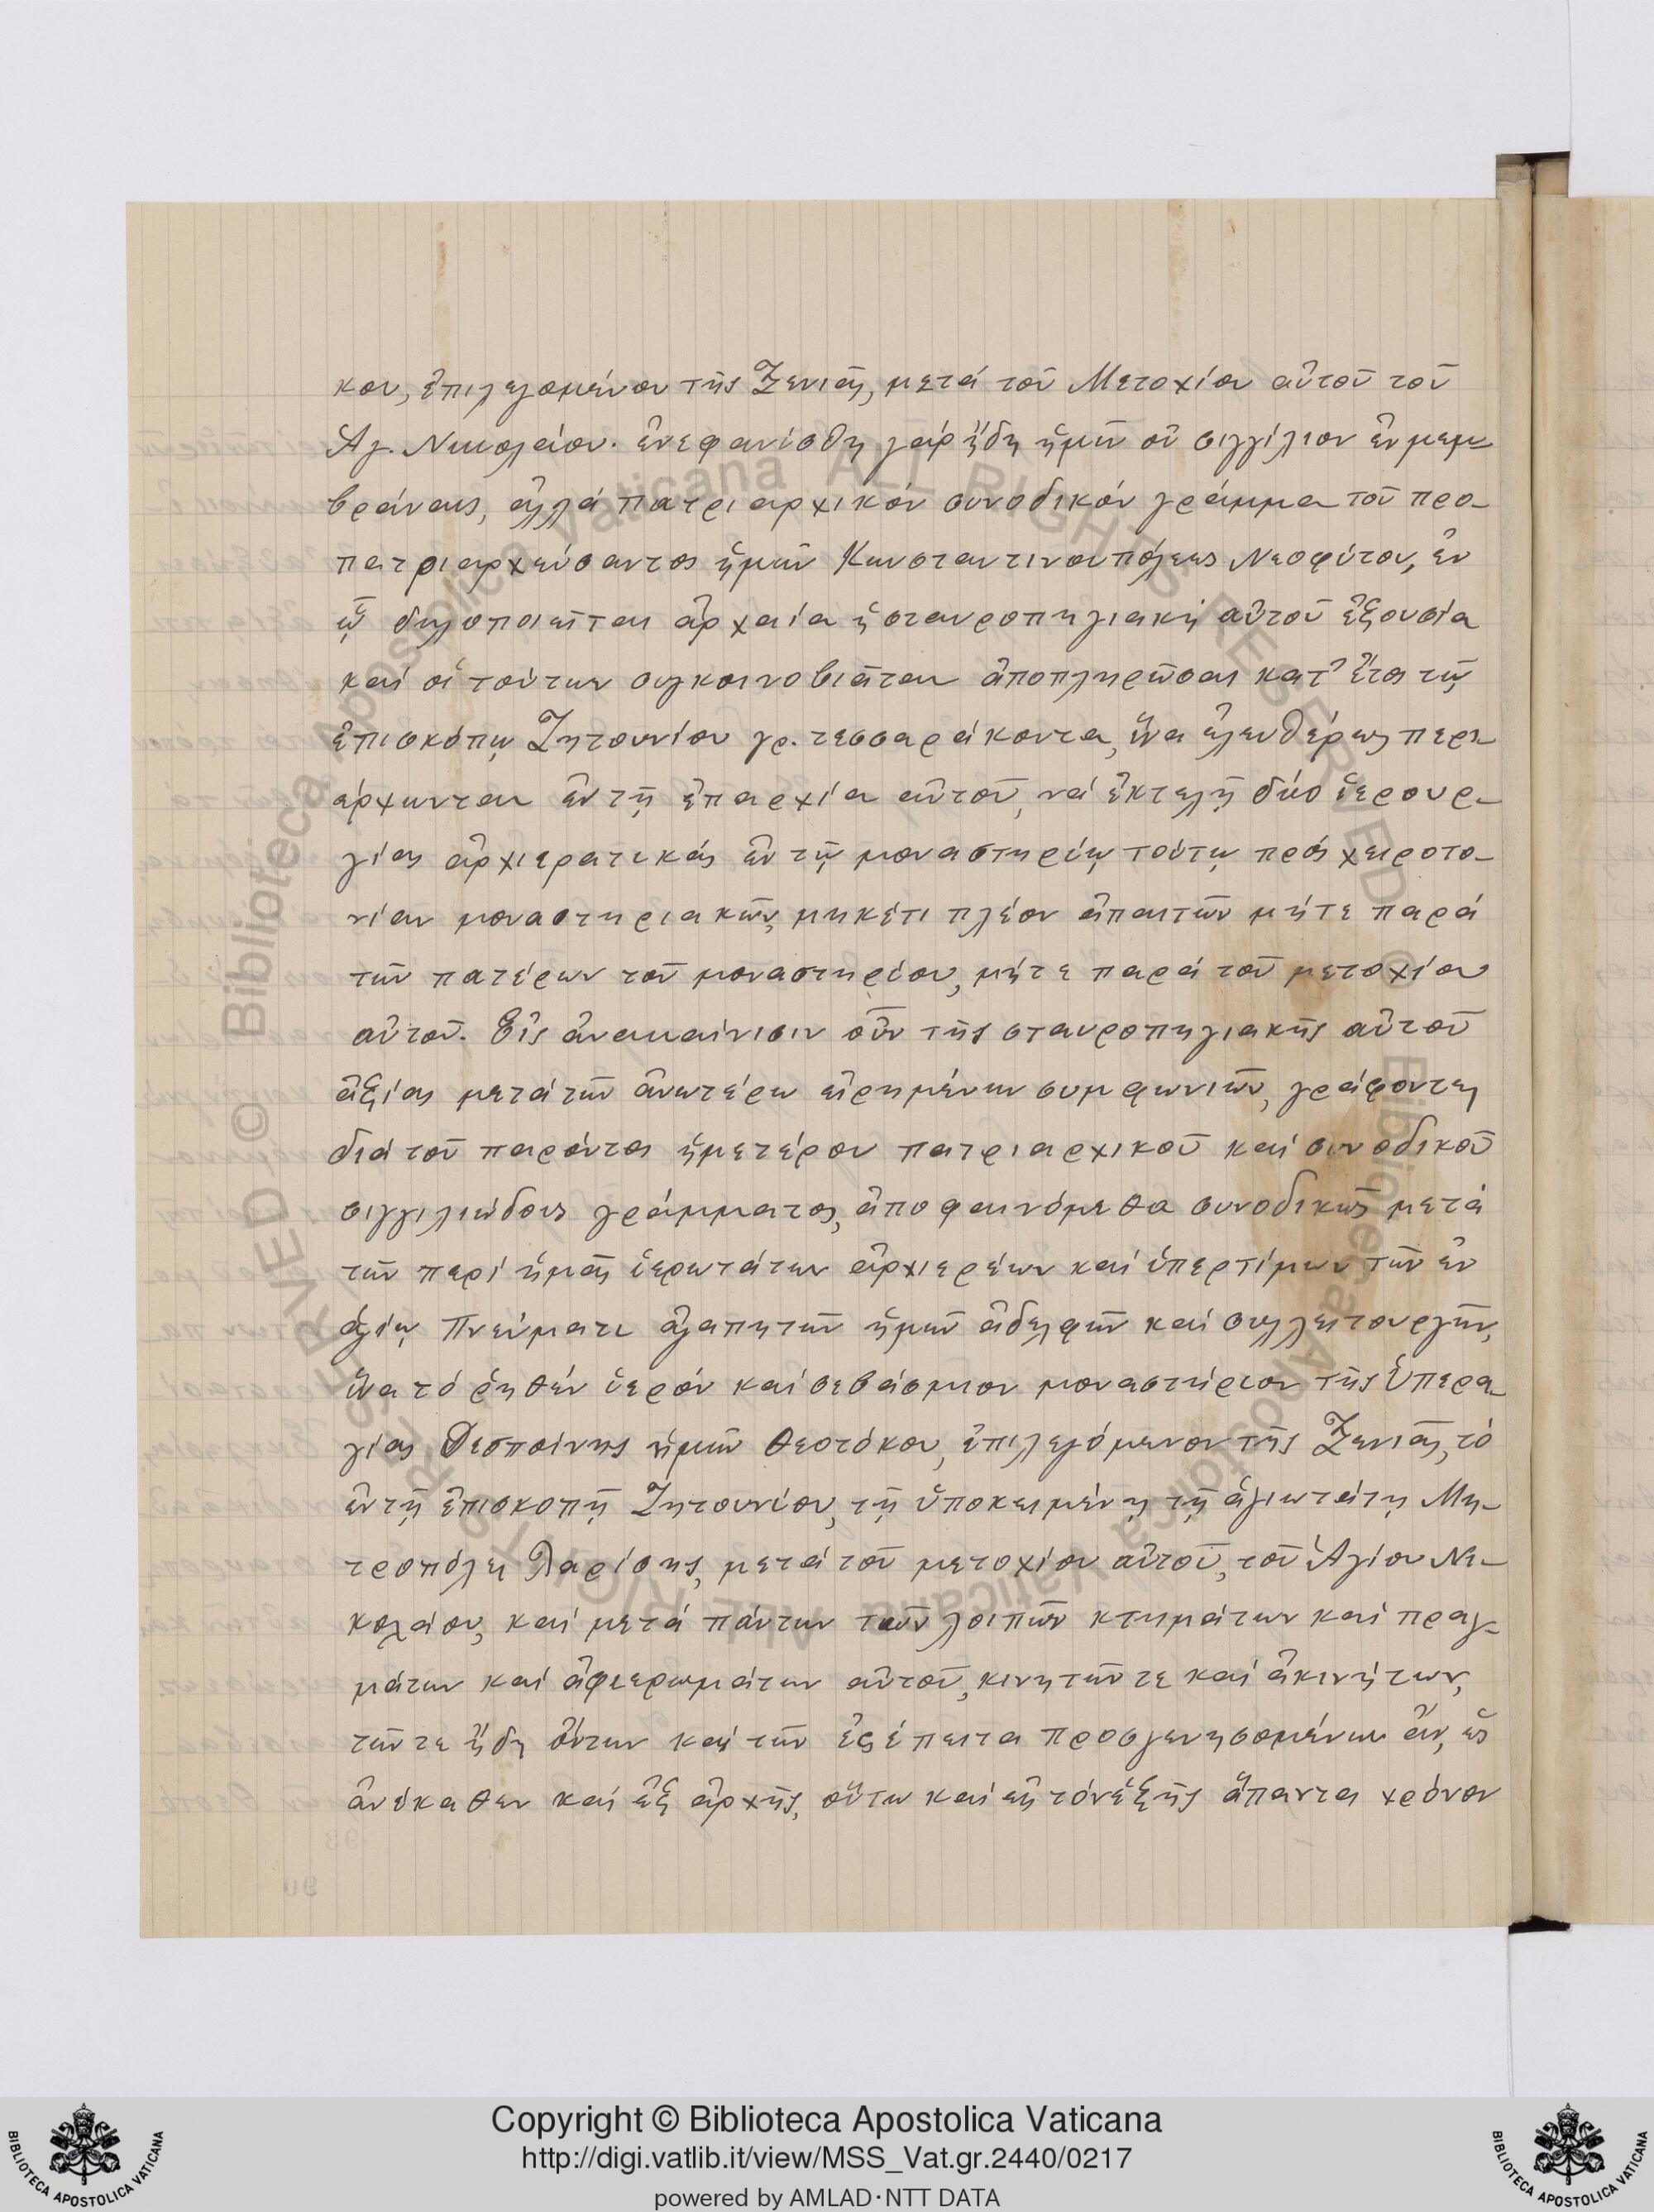 κου, ἐπιλεγομένου τῆς Ξενιᾶς, μετά τοῦ Μετοχίου αὐτοῦ τοῦ
Ἁγ. Νικολάου. ἐνεφανίσθη γάρ ἤδη ἡμῖν οὐ σιγγίλιον ἐν μεμ-
βράναις, ἀλλά πατριαρχικόν συνοδικόν γράμμα τοῦ προ-
πατριαρχεύσαντος ἡμῶν Κωνσταντινουπόλεως Νεοφύτου, ἐν
ᾧ δηλοποιεῖται ἀρχαία ἡ σταυροπηγιακή αὐτοῦ ἐξουσία
καί οἱ τούτων συγκοινοβιᾶται ἀποπληρῶσαι κατ' ἔτος τῷ
ἐπισκόπῳ Ζητουνίου γρ. τεσσαράκοντα, ἵνα ἐλευθέρως περι
έρχωνται ἐν τῇ ἐπαρχία αὐτοῦ, νά ἐκτελῇ δύο ἱερουρ-
γίας ἀρχιερατικάς ἐν τῷ μοναστηρίῳ τούτῳ πρός χειροτο-
νίαν μοναστηριακῶν, μηκέτι πλέον ἀπαιτῶν μήτε παρά
τῶν πατέρων τοῦ μοναστηρίου, μήτε παρά τοῦ μετοχίου
αὐτοῦ. Εἰς ἀνακαίνισιν οὖν τῆς σταυροπηγιακῆς αὐτοῦ
ἀξίας μετά τῶν ἀνωτέρω εἰρημένων συμφωνιῶν, γράφοντες
διά τοῦ παρόντος ἡμετέρου πατριαρχικοῦ καί συνοδικοῦ
σιγγιλιώδους γράμματος, ἀποφαινόμεθα συνοδικῶς μετά
τῶν περί ἡμᾶς ἱερωτάτων ἀρχιερέων καί ὑπερτίμων τῶν ἐν
ἁγίῳ Πνεύματι ἀγαπητῶν ἡμῶν ἀδελφῶν καί συλλειτουργῶν,
ἵνα τό ῥηθέν ἱερόν καί σεβάσμιον μοναστήριον τῆς Ὑπερα-
γίας Δεσποίνης ἡμῶν Θεοτόκου, ἐπιλεγόμενον τῆς Ξενιᾶς, τό
ἐν τῇ ἐπισκοπῇ Ζητουνίου, τῇ ὑποκειμένῃ τῇ ἁγιωτάτῃ Μη-
τροπόλει Λαρίσης, μετά τοῦ μετοχίου αὐτοῦ, τοῦ Ἁγίου Νι-
κολάου, καί μετά πάντων τῶν λοιπῶν κτημάτων καί πραγ-
μάτων καί ἀφιερωμάτων αὐτοῦ, κινητῶν τε καί ἀκινήτων,
τῶν τε ἤδη ὄντων καί τῶν ἐςέπειτα προσγενησομένων ἄν, ὡς
ἀνέκαθεν καί ἐξ ἀρχῆς, οὕτω καί εἰς τόν ἑξῆς ἅπαντα χρόνον
Copyright © Biblioteca Apostolica Vaticana
http://digi.vatlib.it/view/MSS_Vat.gr.2440/0217
powered by AMLAD·NTT DATA